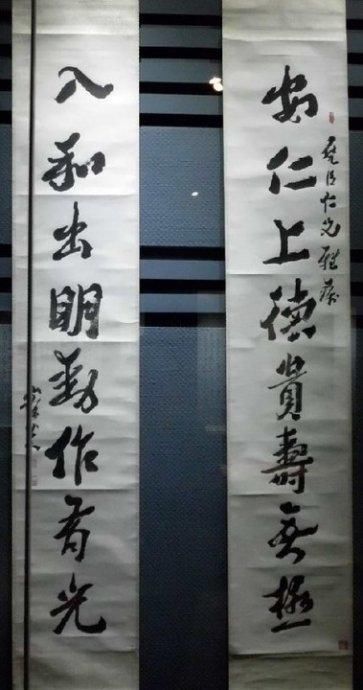 安仁上德貴壽無極
仁兄雅
入和出明動作有光